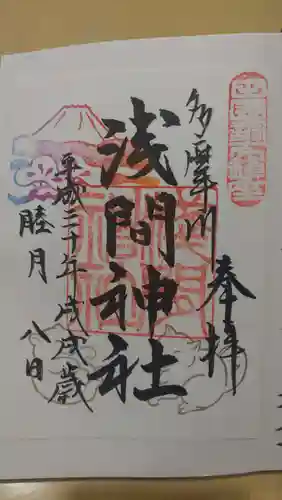 多摩川
奉拝
浅間神社
平成三十年戊戌歳
睦月
八日